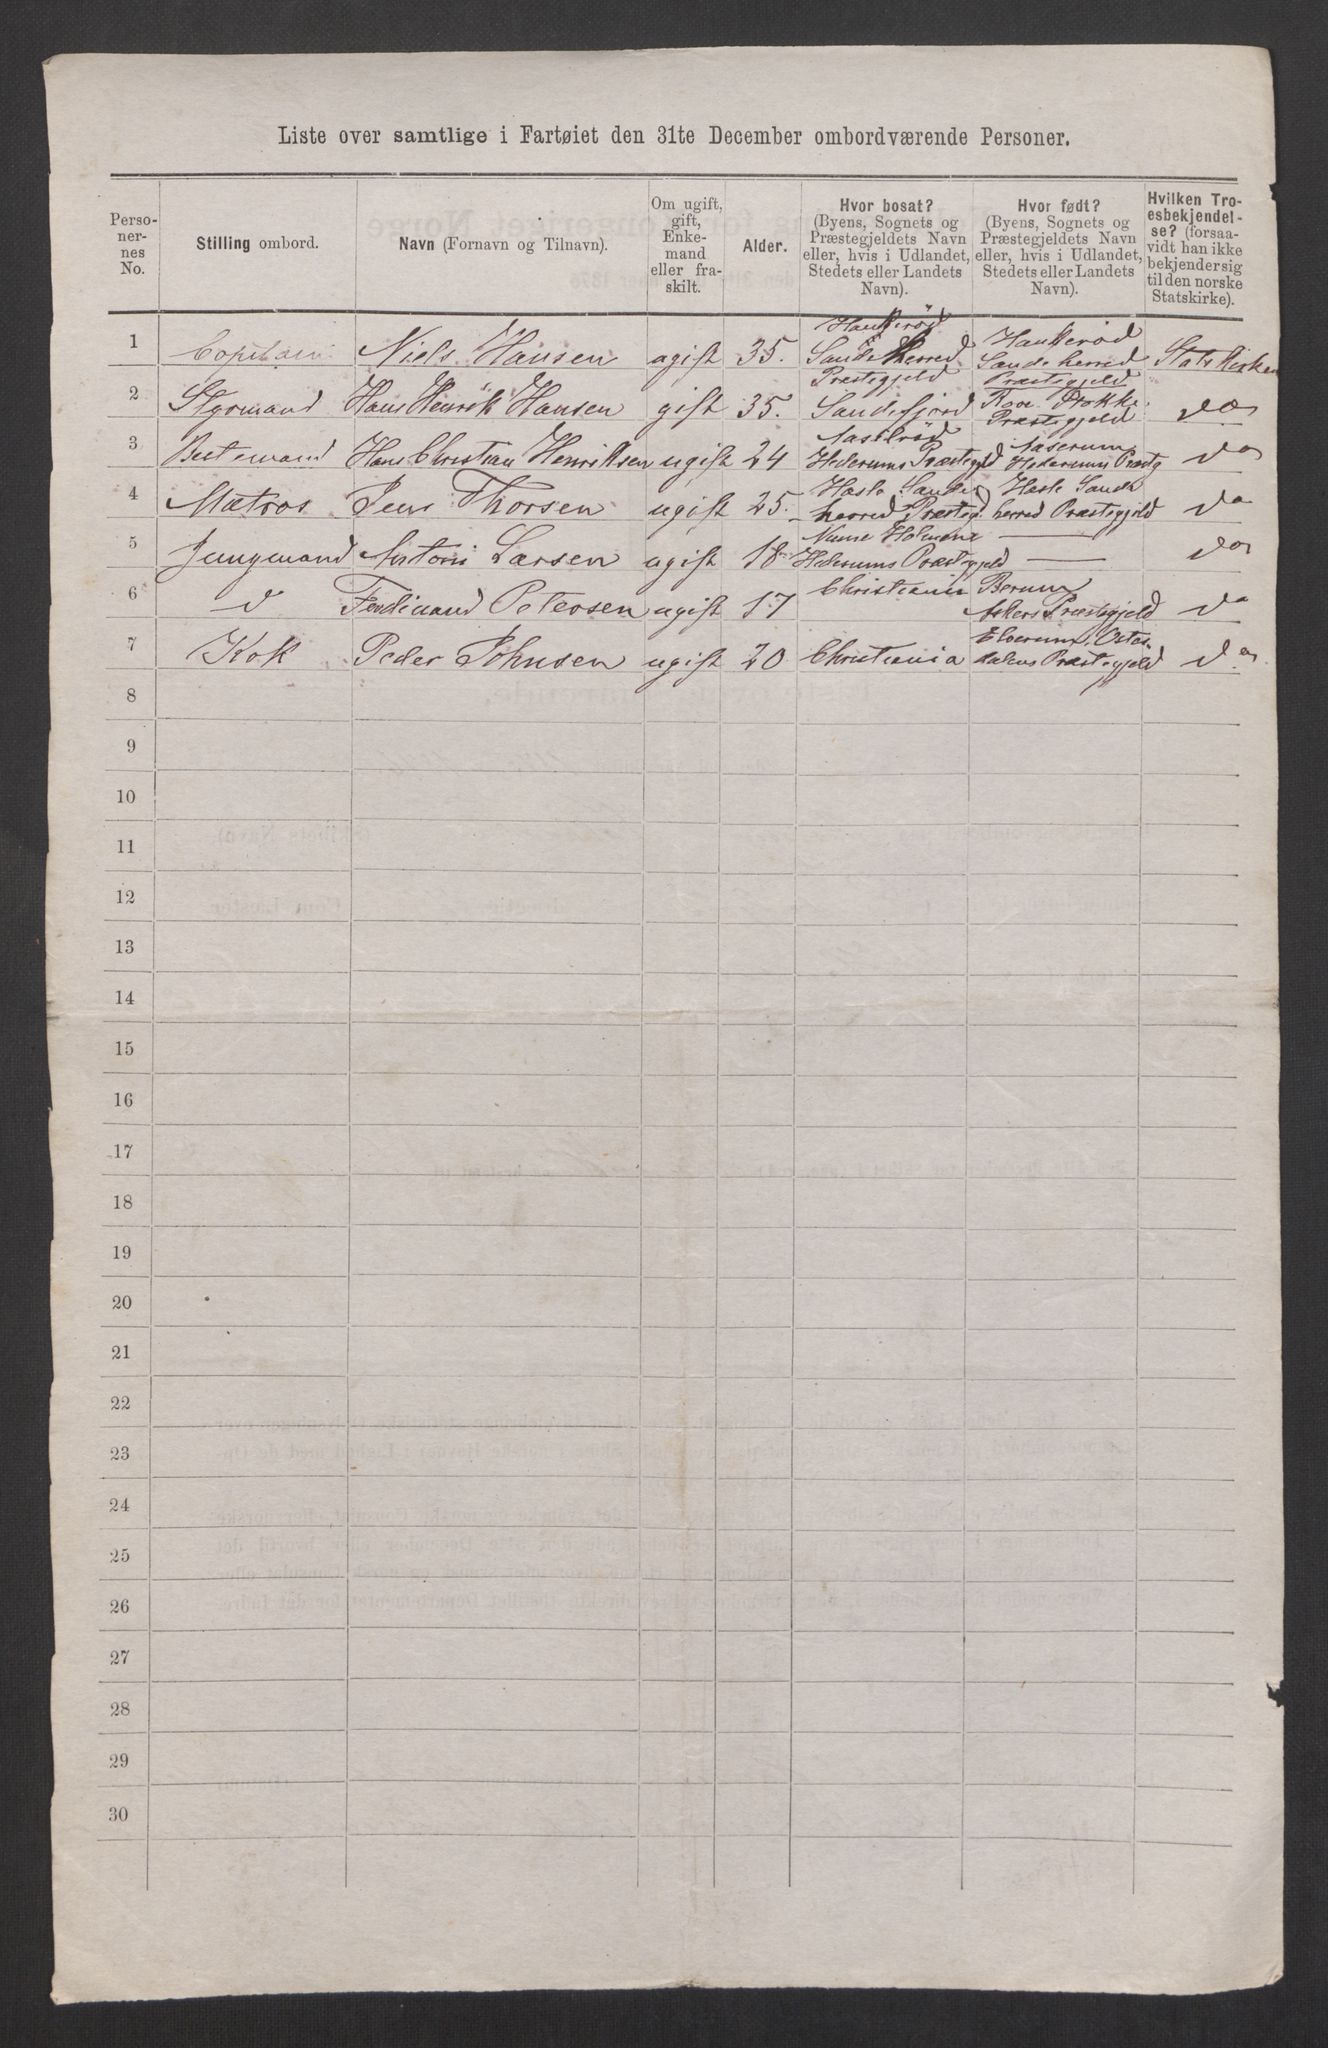 Liste over samtlige i Fartøiet den 31te December ombordværende Personer.
Perso-
ner-
nes
No.
Stilling ombord.
Navn (Fornavn og Tilnavn).
Om ugift,
gift,
Enke-
mand
eller fra-
skilt.
Alder.
Hvor bosat?
(Byens, Sognets og
Præstegjeldets Navn
eller, hvis i Udlandet,
Stedets eller Landets
Navn).
Hvor født?
(Byens, Sognets og
Præstegjeldets Navn
eller, hvis i Udlandet,
Stedets eller Landets
Navn).
Hvilken Tro-
esbekjendel-
se? (forsaa-
vidt han ikke
bekjender sig
til den norske
Statskirke).
1 Capitain Niels Hansen ugift 35. Haukerød Sandeherred Præstegjeld Haukerød Sandeherred Præstegjeld Statskirken
2 Styrmand Hans Henrik Hansen gift 35. Sandefjord Stokke Præstegjeld do
3 Bestemand Hans Christian Henriksen ugift 24 Hederums Præstegjeld Aaserum Hederums Præstg do
4 Matros Jens Thorsen ugift 25. Hasle Sandeherred Præsteg. Hasle Sandeherred Præstegjeld do
5 Jungmand Antoni Larsen ugift 18 Holmene Hederums Præstegjeld — — do
6 d Ferdinand Petersen ugift 17 Christiania Berum Askers Præstegjeld do
7 Kok Peder Johnsen ugift 20 Christiania Elverum Østerdalens Præstegjeld do
8
9
10
11
12
13
14
15
16
17
18
19
20
21
22
23
24
25
26
27
28
29
30